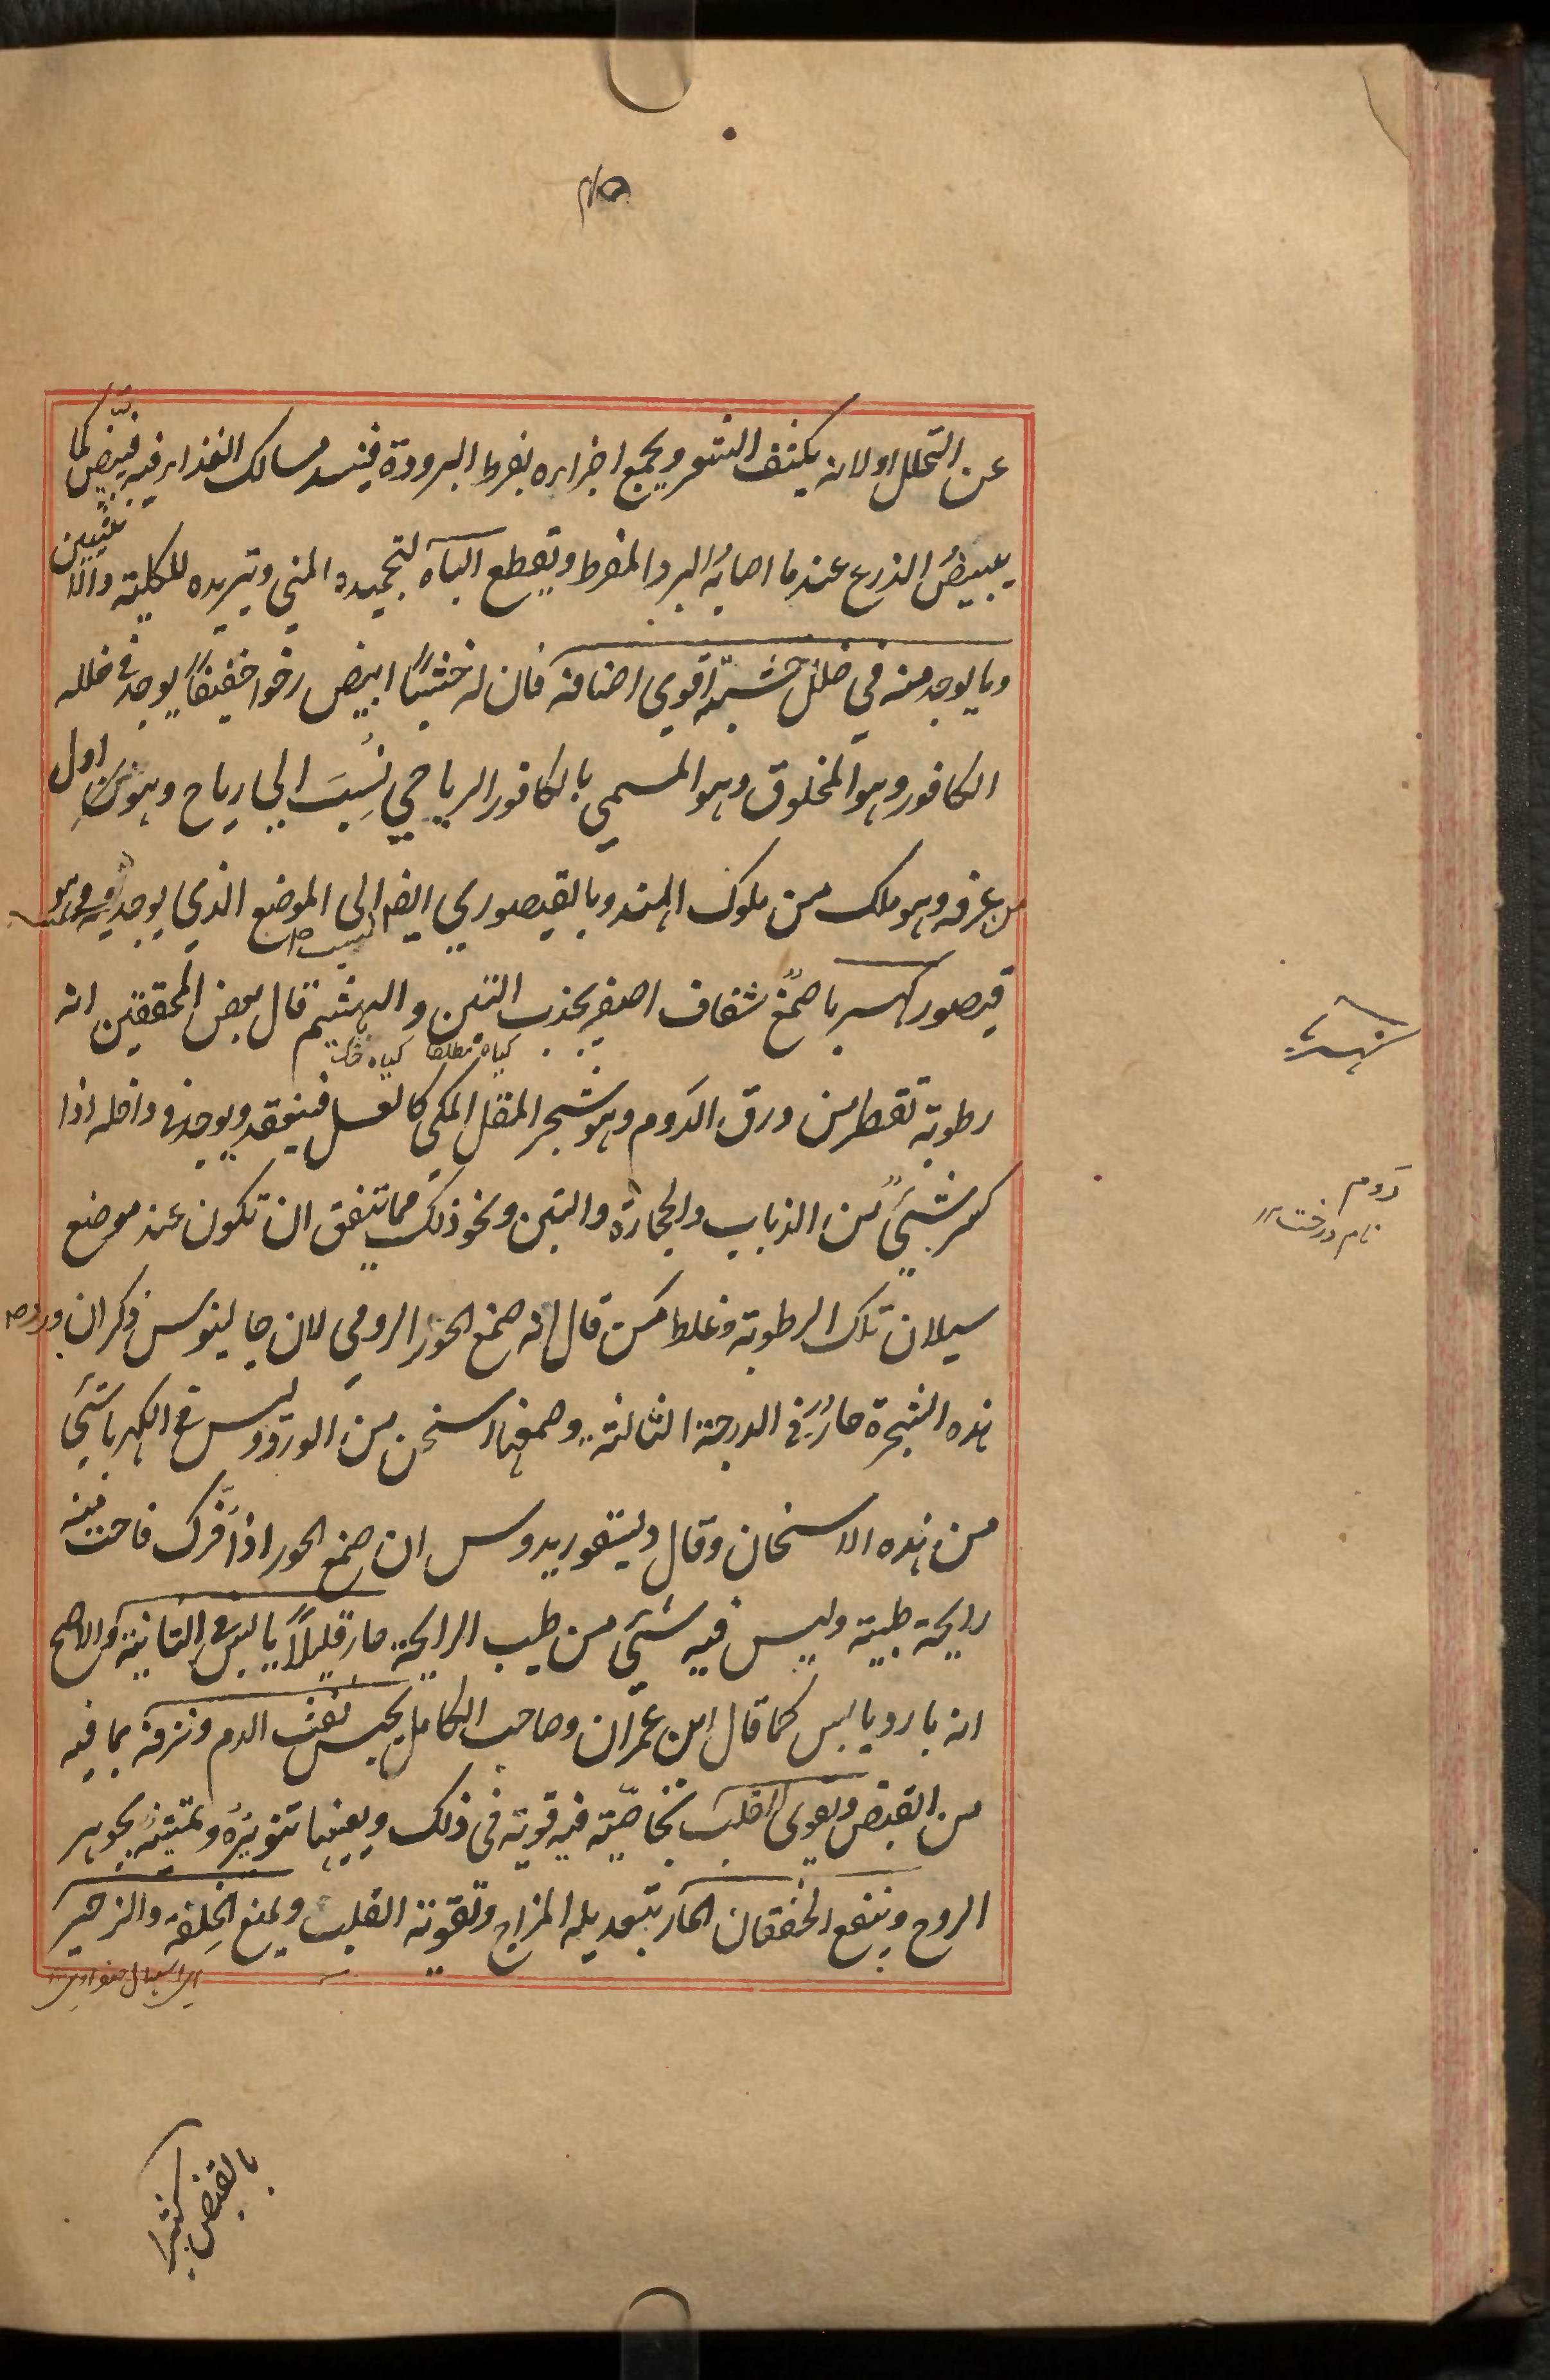 عن التحلل اولا نه يكثف الشعر ويجمع اجزاءه بفرط البرودة فيسد مسالك الغذاء فيه فيبيض كما
يبيضُ الزرع عندما اصابهُ البرد المفرط ويقطع الباه لتجميده المني وتبريده للكلية والانثيين
وما يوجد منه في خلل خشبة اقوي اصنافه فان له خشبًا ابيض رخوا خفيفًا يوجد في خلله
الكافور وهو المخلوق وهو المسمي بالكافور الرياحي نُسِبَ الي رياح وهو اول
من عرفه وهو ملك من ملوك الهند وبالقيصوري ايضا الى الموضع الذي يوجد فيه وهو
نسب
قيصور كهربا صمغ شفاف اصفر يجذب التبن والهشيم قال بعض المحققين انه
گیاه مطلقا گیاه خشک
رطوبة تقطر من ورق الدوم وهو شجر المقل المكي كالعسل فينعقد ويوجد في داخله اذا
كسر شيءٌ من الذباب والحجارة والتبن ونحو ذلك مما تتفق ان تكون عند موضع
سيلان تلك الرطوبة وغلط من قال انه صمغ الحور الرومي لان جالينوس ذكر ان ورد
هذه الشجرة حارٌ في الدرجة الثالثة وصمغها اسخن من الورد وليس في الكهربا شيء
من هذه الاسخان وقال ديسقوريدوس ان صمغ الحور اذا فُرِّك فاحت منه
رايحة طيبة وليس فيه شيء من طيب الرايحة حار قليلًا يابس في الثانية والاصح
انه بارد يابس كما قال ابن عمران وصاحب الكامل يحبس نفث الدم ونزفه بما فيه
من القبض ويقوي القلب بخاصّية فيه قوية في ذلك ويعينها تنويرُه وتمتينه بجوهر
الروح وينفع الخفقان الحار بتعديله المزاج وتقويته القلب ويمنع الخِلفه والزحير
اي اسهال صفراوي
بالقبض كثيرا
كهربا
دَوم
نام درخت